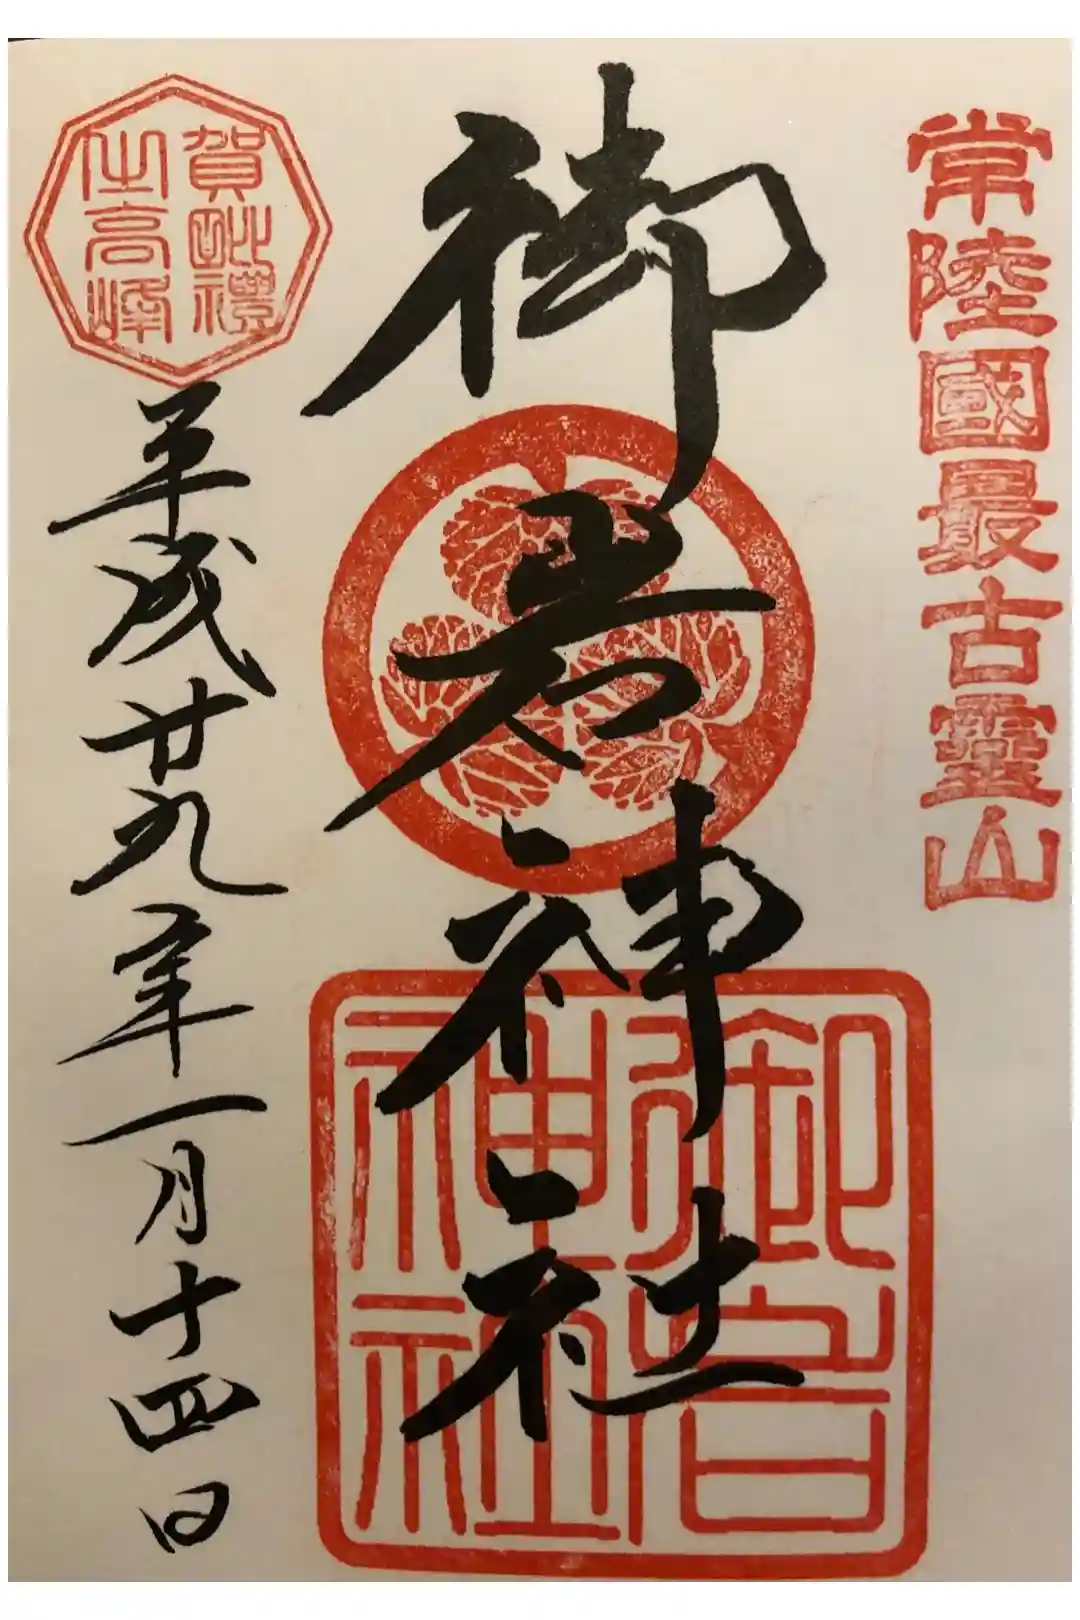 常陸國最古霊山
御岩神社
御岩
神社
賀毗禮
之高峰
平成廿九年一月十四日